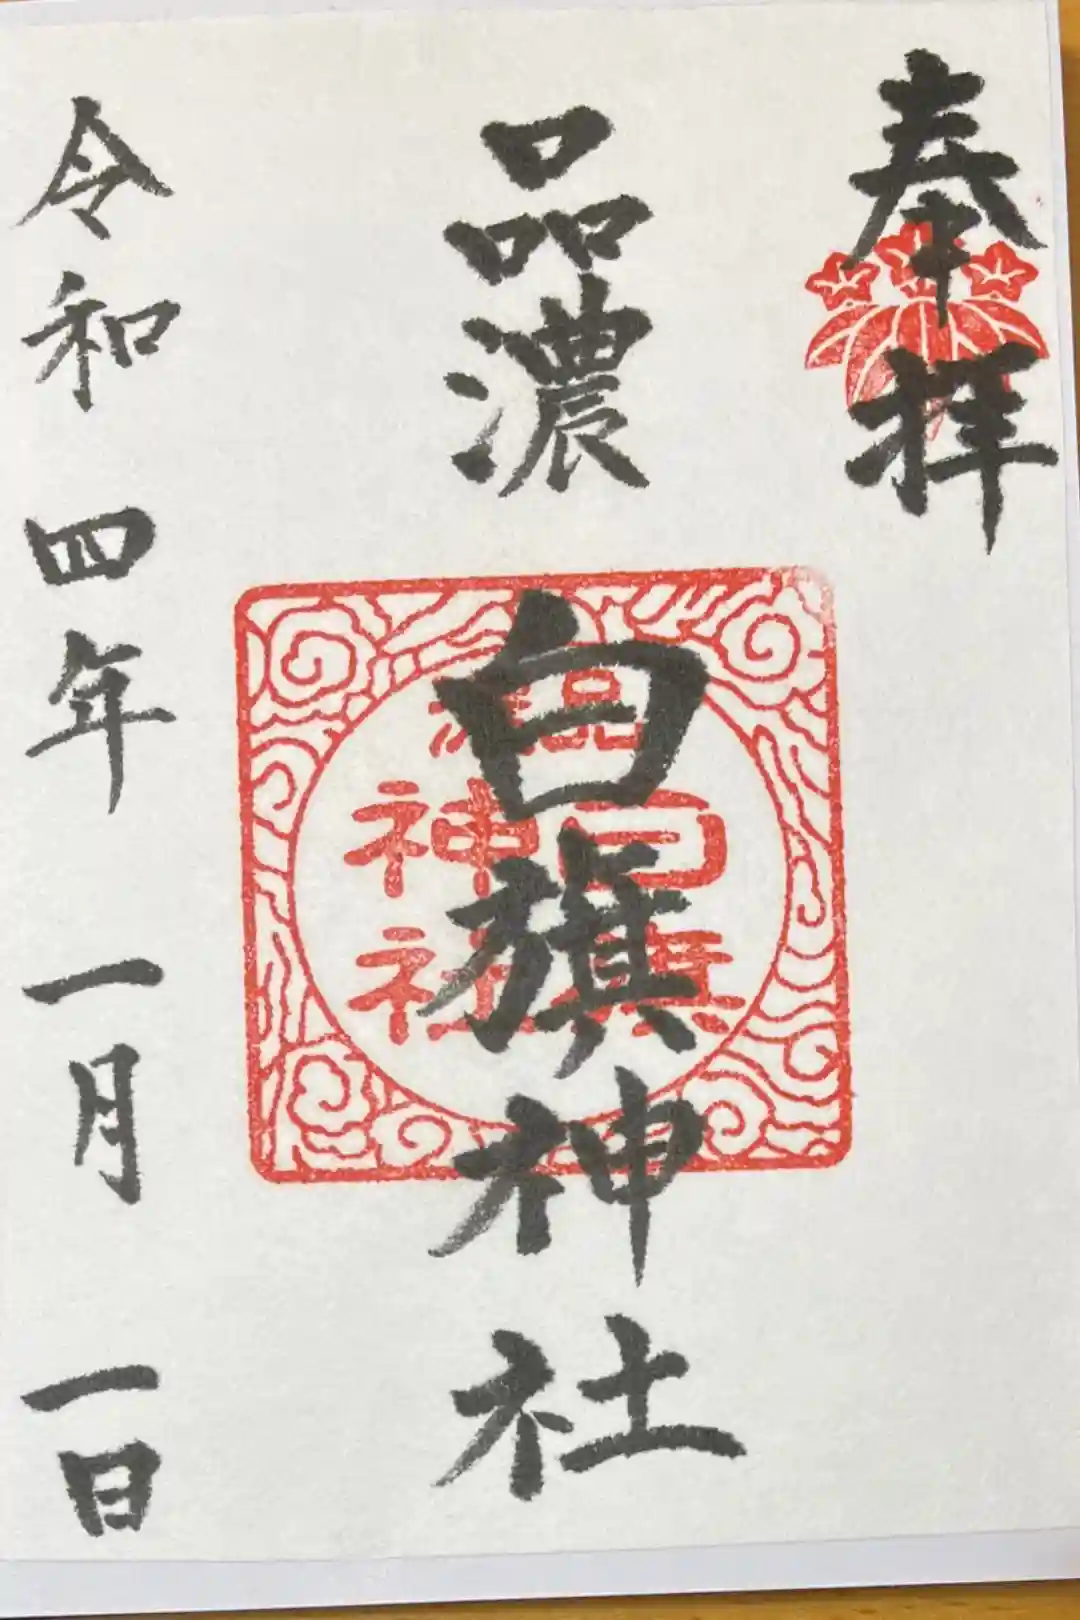 奉拝
品濃
白旗神社
品濃
白旗
神社
令和四年 一月 一日